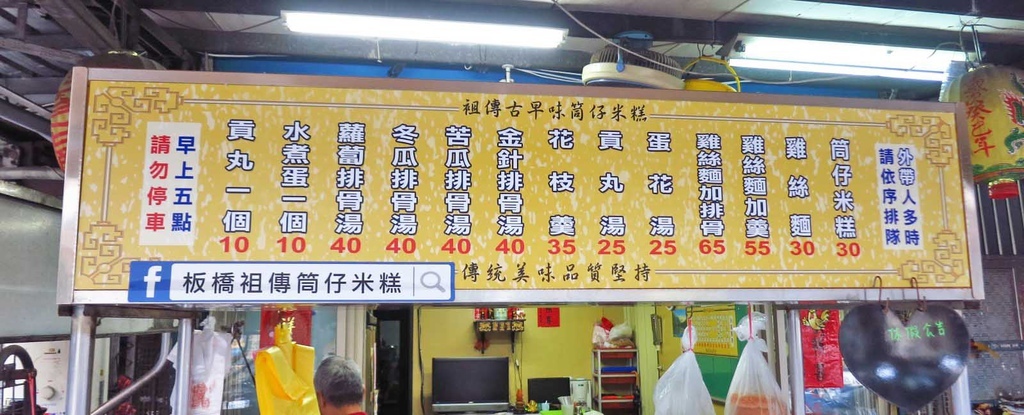 祖傳古早味筒仔米糕
外帶人多時
請依序排隊
筒仔米糕 30
雞絲麵 30
雞絲麵加羹 55
雞絲麵加排骨 65
蛋花湯 25
貢丸湯 25
花枝羹 35
金針排骨湯 40
苦瓜排骨湯 40
冬瓜排骨湯 40
蘿蔔排骨湯 40
水煮蛋一個 10
貢丸一個 10
早上五點
請勿停車
傳統美味品質堅持
f 板橋祖傳筒仔米糕